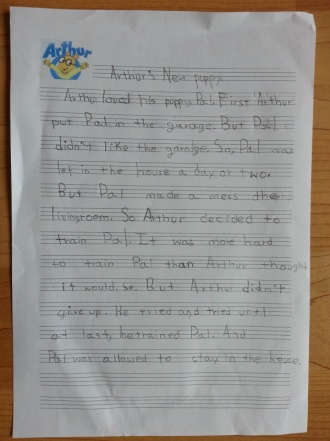 Arthur
Arthur's New puppy.
Arthur loved his puppy Pal. First Arthur
put Pal in the garage. But Pal
didn't like the garage. So, Pal was
let in the house a day or two.
But Pal made a mess the
livingroom. So Arthur decided to
train Pal. It was more hard
to train Pal than Arthur thought
it would. be. But Arthur didn't
give up. He tried and tried until
at last, hetrained Pal. And
Pal was allowed to stay in the house.